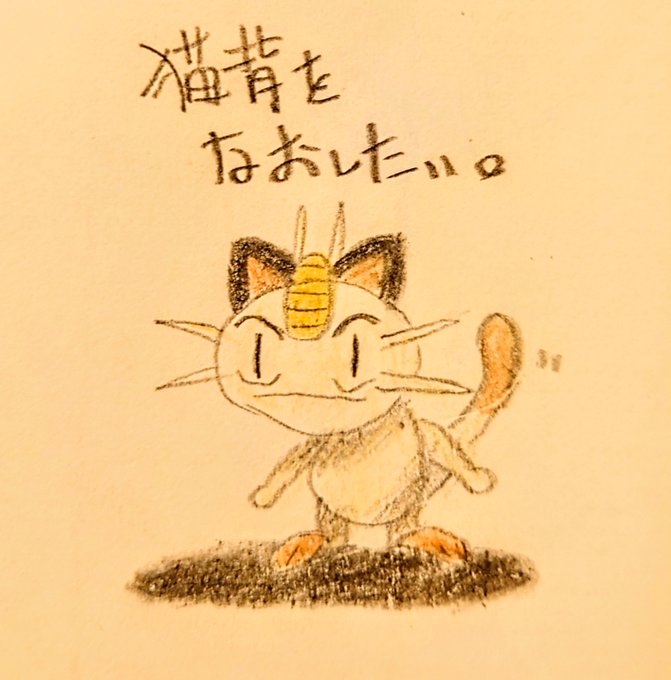 猫背を
なおしたい。